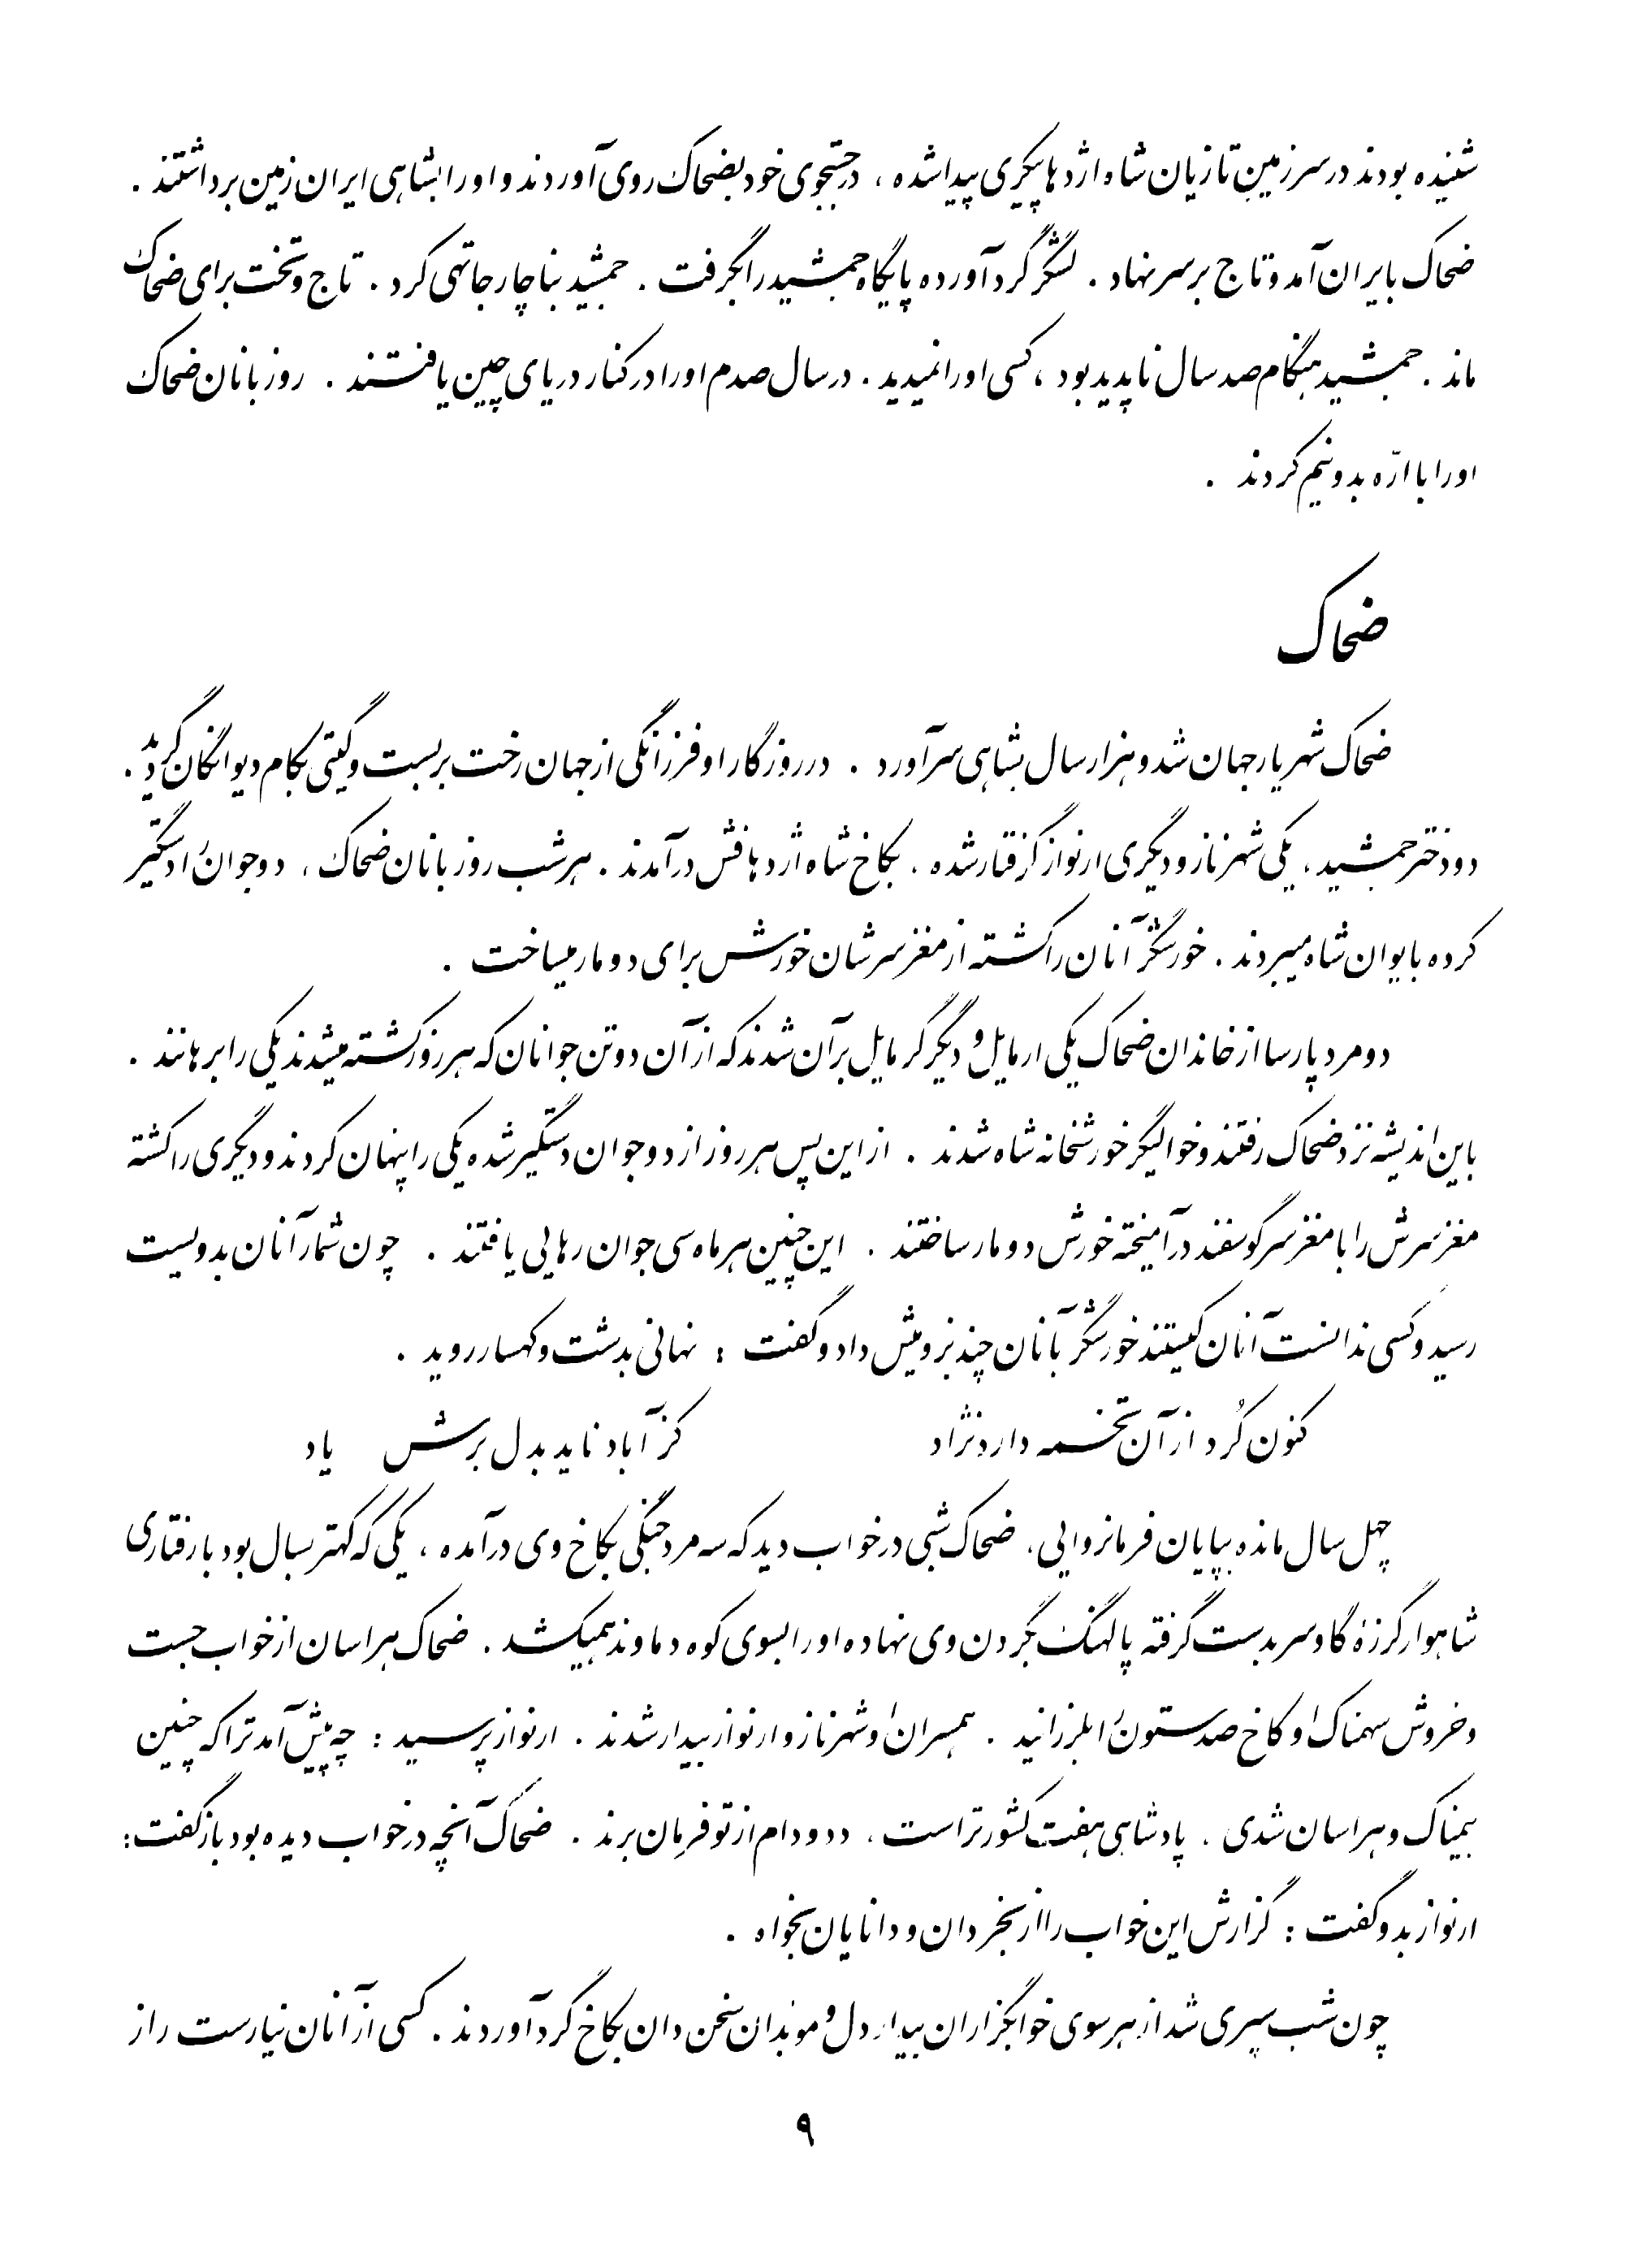 شنیده بودند در سرزمین تازیان شاه اژدها پیکری پیدا شده ، در جستجوی خود بضحاک روی آوردند و او را بشاهی ایران زمین برداشتند .
ضحاک بایران آمد و تاج بر سر نهاد . لشگر گرد آورده پایگاه جمشید را بگرفت . جمشید بناچار جا تهی کرد . تاج و تخت برای ضحاک
ماند . جمشید هنگام صد سال ناپدید بود ، کسی او را نمیدید . در سال صدم او را در کنار دریای چین یافتند . روزبانان ضحاک
او را با ارّه بدو نیم کردند .
ضحاک
ضحاک شهریار جهان شد و هزار سال بشاهی سر آورد . در روزگار او فرزانگی از جهان رخت بر بست و گیتی بکام دیوانگان گردید .
دو دختر جمشید ، یکی شهرناز و دیگری ارنواز گرفتار شده ، بکاخ شاه اژدهافش در آمدند . هر شب روزبانان ضحاک ، دو جوان را دستگیر
کرده بایوان شاه میبردند . خورشگر آنان را کشته از مغز سرشان خورش برای دو مار میساخت .
دو مرد پارسا از خاندان ضحاک یکی ارمایل و دیگر گرمایل بر آن شدند که از آن دو تن جوانان که هر روز کشته میشدند یکی را برهانند .
باین اندیشه نزد ضحاک رفتند و خوالیگر خورشخانه شاه شدند . از این پس هر روز از دو جوان دستگیر شده یکی را پنهان کردند و دیگری را کشته
مغز سرش را با مغز سر گوسفند در آمیخته خورش دو مار ساختند . این چنین هر ماه سی جوان رهایی یافتند . چون شمار آنان بدویست
رسید و کسی ندانست آنان کیستند خورشگر بآنان چند بز و میش داد و گفت : نهانی بدشت و کهسار روید .
کنون کُرد از آن تخمه دارد نژاد کز آباد ناید بدل برش یاد
چهل سال مانده بپایان فرمانروایی ، ضحاک شبی در خواب دید که سه مرد جنگی بکاخ وی در آمده ، یکی که کهتر بسال بود با رفتاری
شاهوار گرزهٔ گاوسر بدست گرفته پالهنگ بگردن وی نهاده او را بسوی کوه دماوند همیکشد . ضحاک هراسان از خواب جست
و خروش سهمناک او کاخ صد ستون را بلرزانید . همسران او شهرناز و ارنواز بیدار شدند . ارنواز پرسید : چه پیش آمد ترا که چنین
بیمناک و هراسان شدی . پادشاهی هفت کشور تراست ، دد و دام از تو فرمان برند . ضحاک آنچه در خواب دیده بود باز گفت :
ارنواز بدو گفت : گزارش این خواب را از بخردان و دانایان بخواه .
چون شب سپری شد از هر سوی خوابگزاران بیدار دل و موبدان سخن دان بکاخ گرد آوردند . کسی از آنان نیارست راز
۹